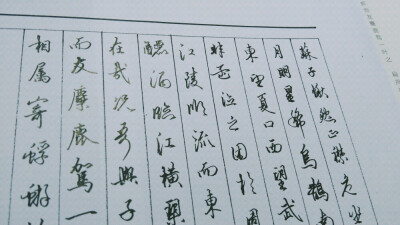 蘇子愀然正襟危坐
月明星稀烏鵲南
東望夏口西望武
之困於周
江陵順流而東
釃酒臨江橫槊
在哉況吾與子
而友麋鹿駕一
相属寄蜉蝣